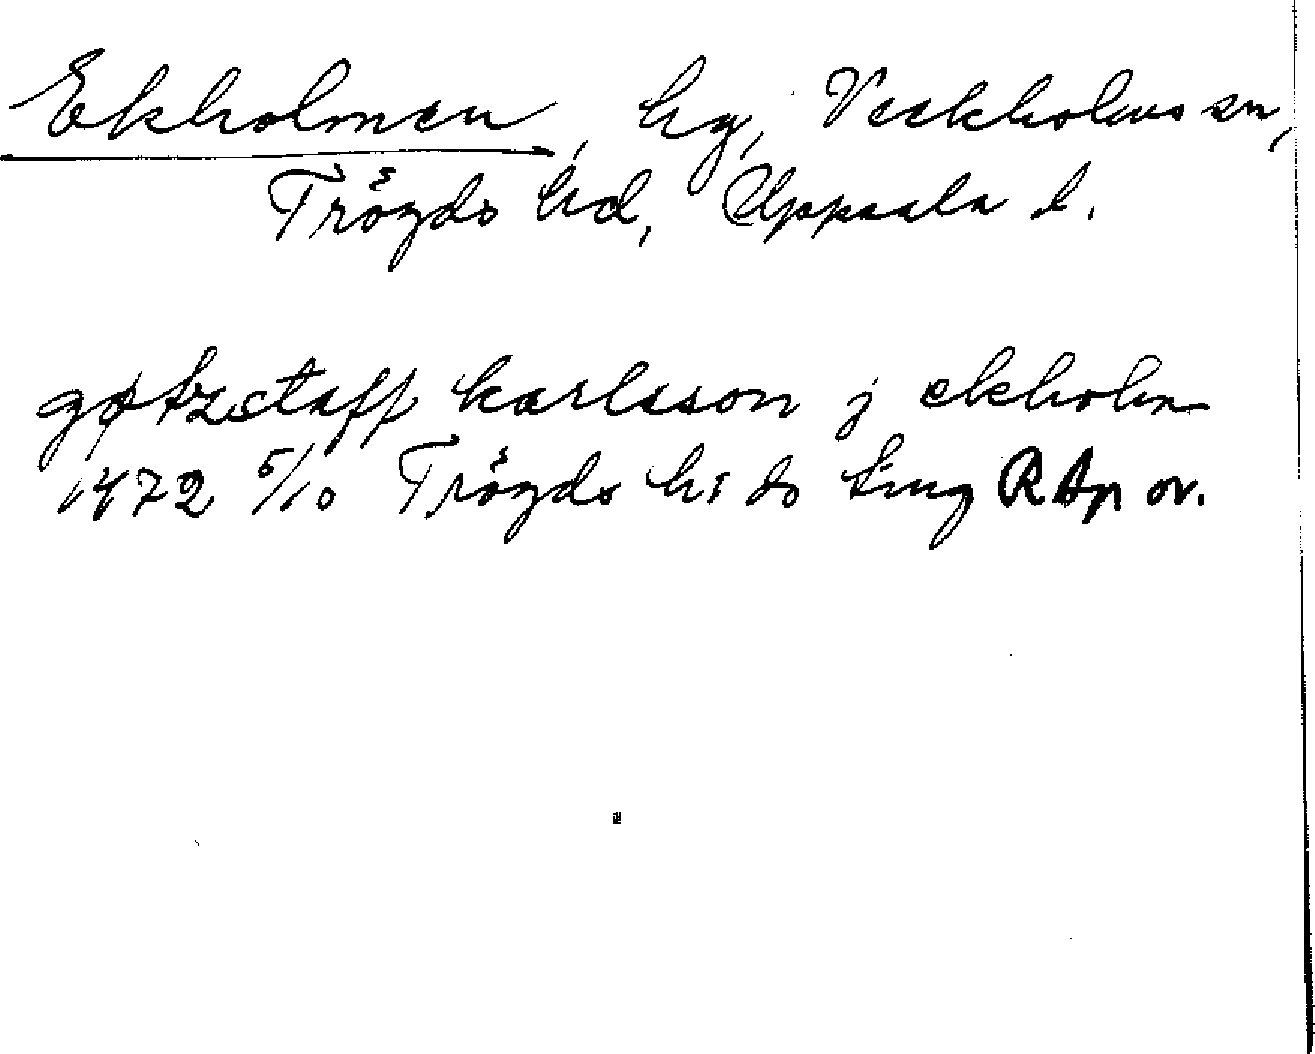 Ekholmen, hg, Veckholms sn,
Trögds hd, Uppsala l.
gøtzstaff karlsson j ekholm
1472 5/10 Trögds hds ting RAp or.